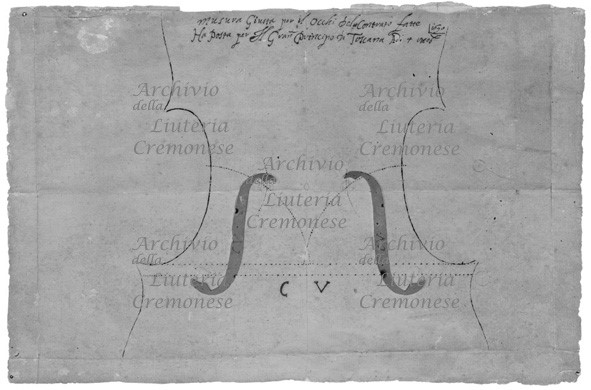 musura Giusta per gl Occhi del Contraro latto
1690
Ha Posta per Il Gran Principe di Toscana
Archivio
della
Liuteria
Cremonese
Archivio
della
Liuteria
Cremonese
Archivio
della
Liuteria
Cremonese
Archivio
della
Liuteria
Cremonese
Archivio
della
Liuteria
Cremonese
C V